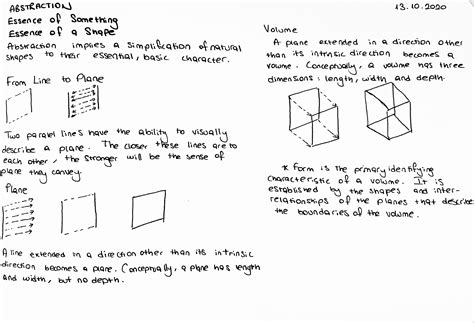 ABSTRACTION
Essence of Something
Essence of a Shape
Abstraction implies a simplification of natural
shapes to their essential, basic character.
From Line to Plane
Two paralel lines have the ability to visually
describe a plane. The closer these lines are to
each other, the stronger will be the sense of
plane they convey.
Plane
A line extended in a direction other than its intrinsic
direction becomes a plane. Conceptually, a plane has length
and width, but no depth.
13.10.2020
Volume
A plane extended in a direction other
than its intrinsic direction becomes a
volume. Conceptually, a volume has three
dimensions: length, width and depth.
* Form is the primary identifying
characteristic of a volume. It is
established by the shapes and inter-
relationships of the planes that describe
the boundaries of the volume.